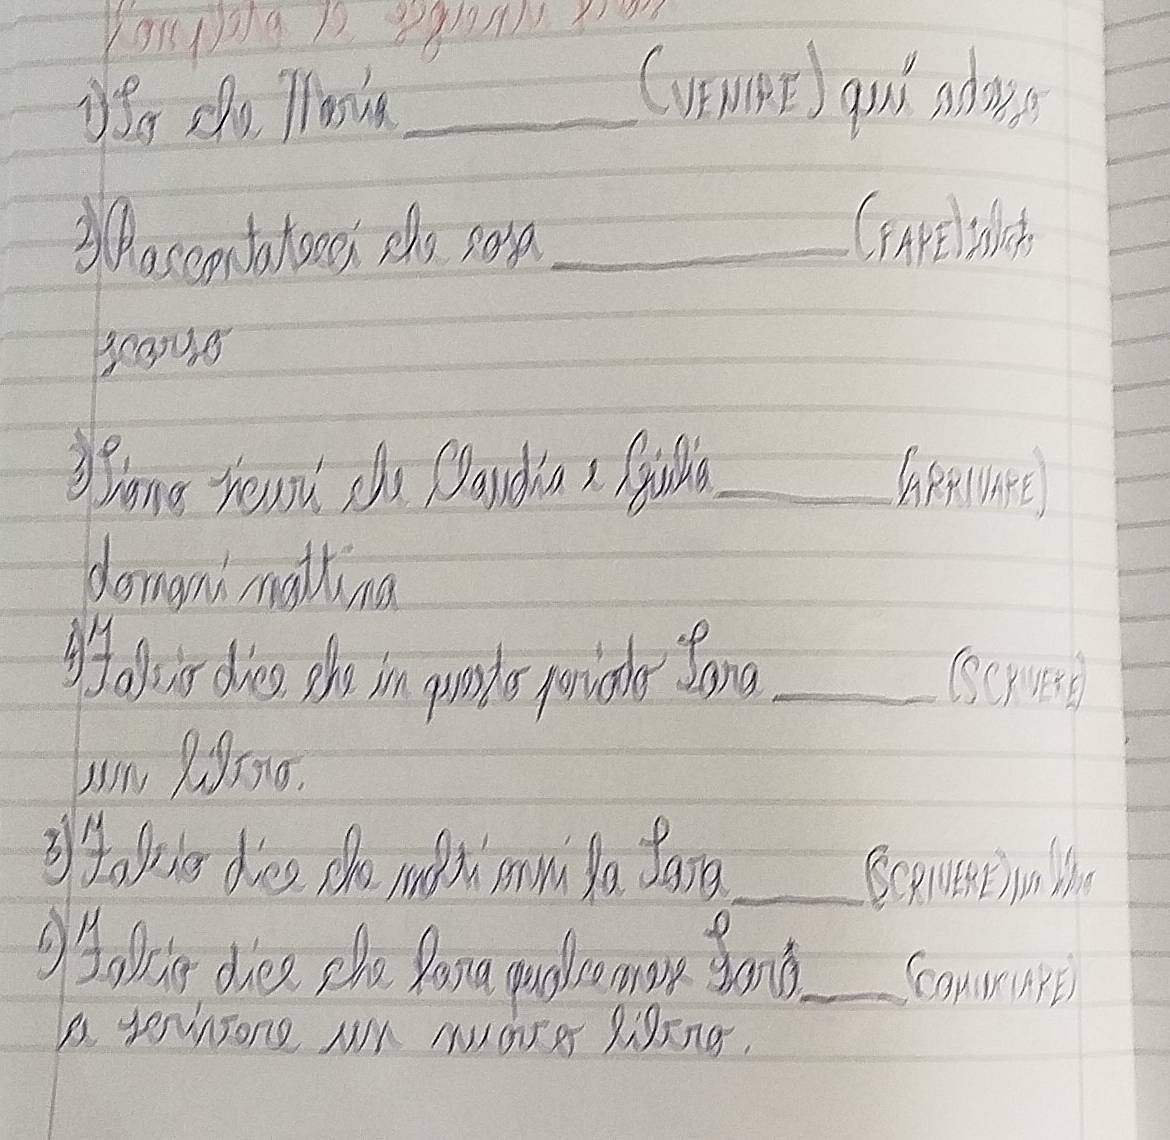 Completa le seguenti frasi
1) So che Maria ________ (VENIRE) qui adesso
2) Raccontateci che cosa ________ (FARE) sabato
scorso
3) Siamo sicuri che Claudia e Giulia ________ (ARRIVARE)
domani mattina
4) Il Falcio dice che in questo periodo Sara ________ (SCRIVERE)
un libro.
5) Il Falcio dice che molti anni fa Sara ________ (SCRIVERE) un libro
6) Il Falcio dice che Sara qualce mese Sara ________ (COMINCIARE)
a scrivere un nuovo libro.